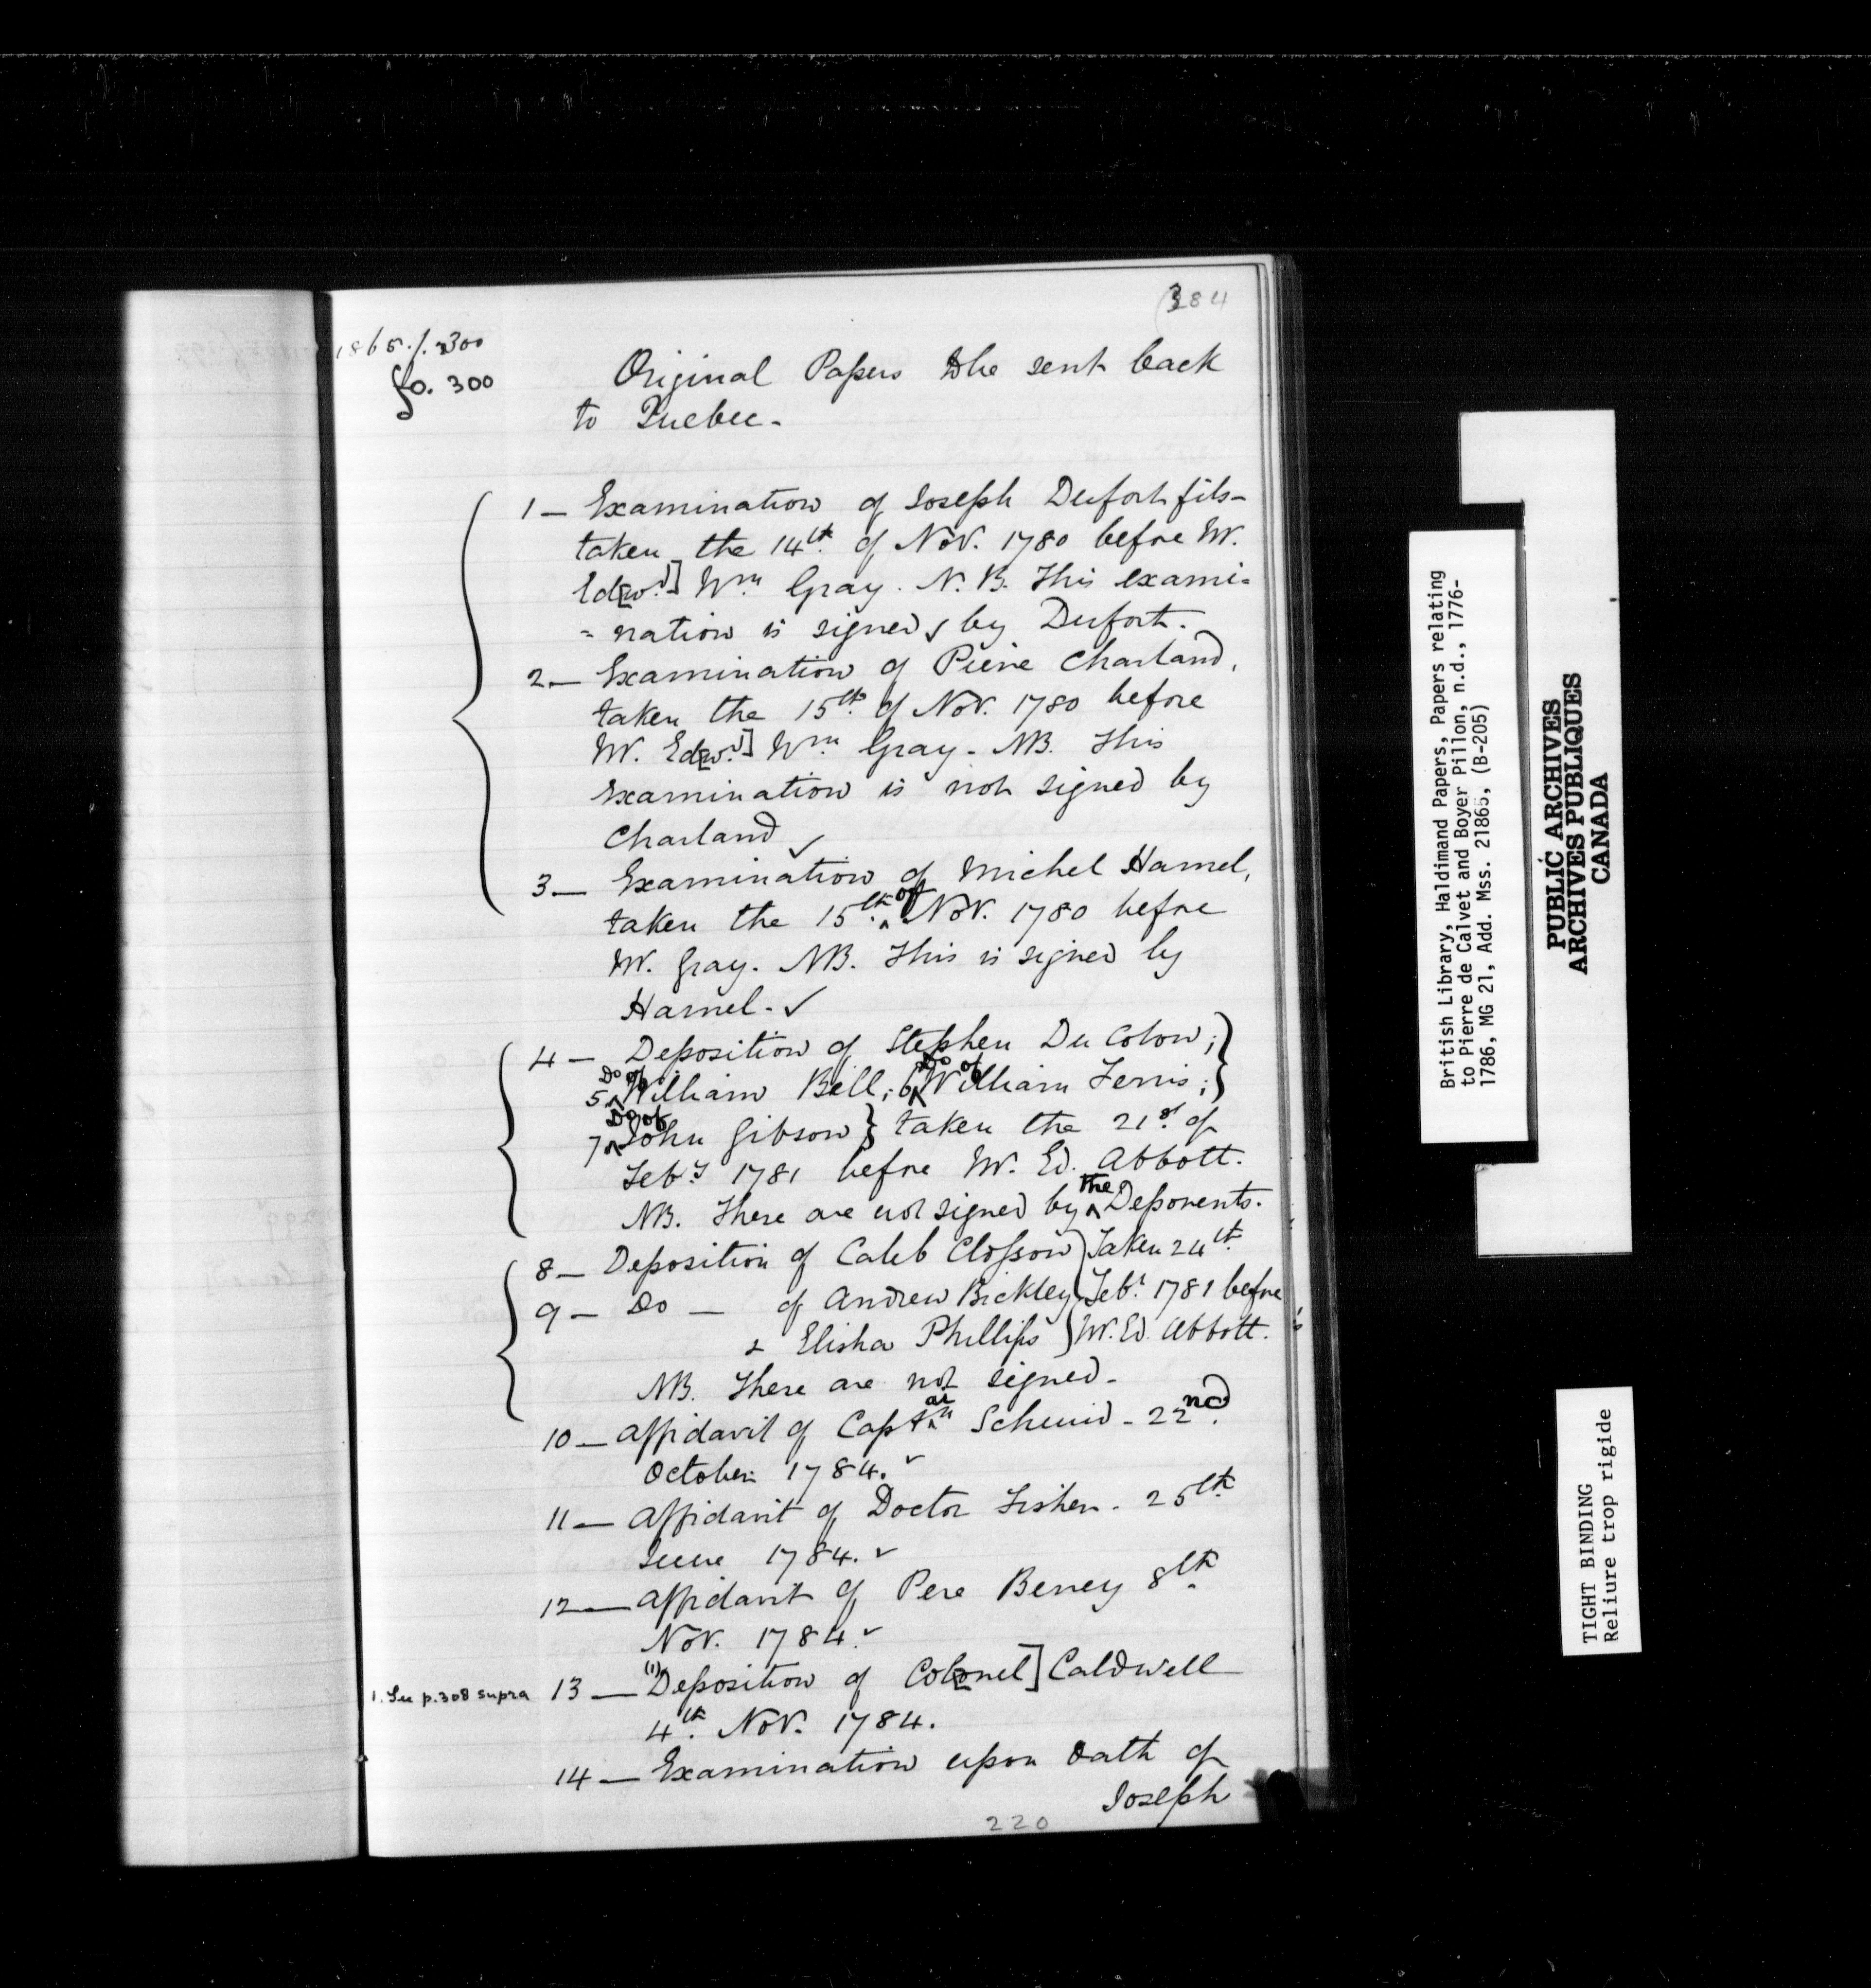 384
1865. f. 300
fo. 300
Original Papers to be sent back
to Quebec.
1 — Examination of Joseph Dufort fils-
taken the 14th. of Nov. 1780 before M.
Ed[w.d] Wm. Gray. N.B. This exami-
- nation is signed by Dufort.
2 — Examination of Pierre Charland,
taken the 15th. of Nov. 1780 before
M. Ed[w.d] Wm. Gray - NB. This
Examination is not signed by
Charland ✓
3 — Examination of Michel Hamel,
taken the 15th. of Nov. 1780 before
M. Gray. NB. This is signed by
Hamel - ✓
4 — Deposition of Stephen Du Colon; }
5 Do of William Bell; 6 Do of William Ferris; }
7 Do of John Gibson } taken the 21st of
Feby 1781 before M. Ed. Abbott.
NB. These are not signed by the Deponents.
8 — Deposition of Caleb Closson } Taken 24th.
9 — Do — of Andrew Bickley } Feby. 1781 before
& Elisha Phillips } M. Ed. Abbott.
NB. These are not signed.
10 — Affidavit of Captain Schmid - 22nd.
October 1784. ✓
11 — Affidavit of Doctor Fisher - 25th.
June 1784. ✓
12 — Affidavit of Pere Berrey 8th.
Nov. 1784. ✓
1. See p. 308 supra
13 — (1) Deposition of Col[onel] Caldwell
4th. Nov. 1784.
14 — Examination upon Oath of
Joseph
220
British Library, Haldimand Papers, Papers relating
to Pierre de Calvet and Boyer Pillon, n.d., 1776-
1786, MG 21, Add. Mss. 21865, (B-205)
PUBLIC ARCHIVES
ARCHIVES PUBLIQUES
CANADA
TIGHT BINDING
Reliure trop rigide